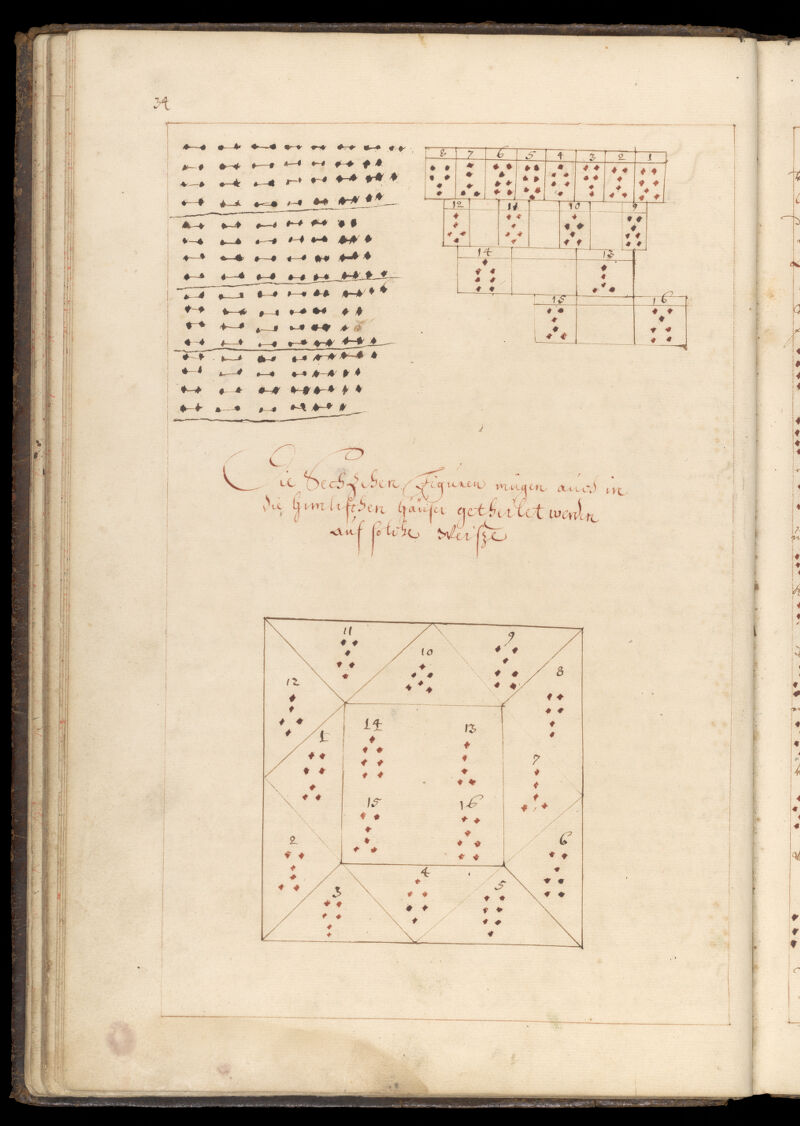 34
8 7 6 5 4 3 2 1
12 11 10 9
14 13
15 16
Die Sechzehen Figuren mügen auch in
die himlischen häuser getheilet werden
auf solche Weisze
11 10 9
12 8
1 14 13 7
15 16
2 6
3 4 5